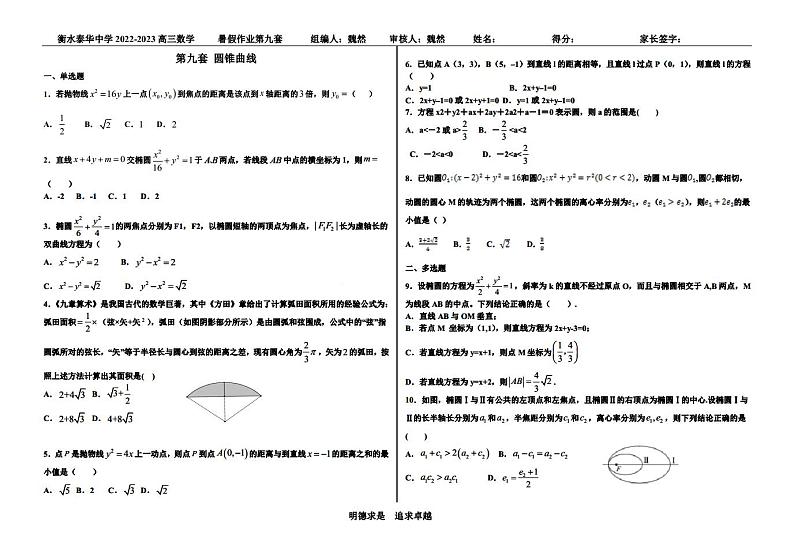 衡水泰华中学 2022-2023 高三数学 暑假作业第九套 组编人：魏然 审核人：魏然 姓名： 得分： 家长签字：
第九套 圆锥曲线
一、单选题
1．若抛物线 x²=16y 上一点 (x₀, y₀) 到焦点的距离是该点到 x 轴距离的 3 倍，则 y₀ =（ ）
A．1/2 B．√2 C．1 D．2
2．直线 x+4y+m=0 交椭圆 x²/16+y²=1 于 A,B 两点，若线段 AB 中点的横坐标为 1，则 m=
（ ）
A．-2 B．-1 C．1 D．2
3．椭圆 x²/6+y²/4=1 的两焦点分别为 F1，F2，以椭圆短轴的两顶点为焦点，|F₁F₂| 长为虚轴长的
双曲线方程为（ ）
A．x²−y²=2 B．y²−x²=2
C．x²−y²=√2 D．y²−x²=√2
4．《九章算术》是我国古代的数学巨著，其中《方田》章给出了计算弧田面积所用的经验公式为：
弧田面积=1/2×（弦×矢+矢²），弧田（如图阴影部分所示）是由圆弧和弦围成，公式中的“弦”指
圆弧所对的弦长，“矢”等于半径长与圆心到弦的距离之差，现有圆心角为 2/3 π，矢为 2 的弧田，按
照上述方法计算出其面积是( )
A．2+4√3 B．√3+1/2
C．2+8√3 D．4+8√3
5．点 P 是抛物线 y²=4x 上一动点，则点 P 到点 A(0,−1) 的距离与到直线 x=−1 的距离之和的最
小值是（ ）
A．√5 B．2 C．√3 D．√2
6．已知点 A（3，3），B（5，–1）到直线 l 的距离相等，且直线 l 过点 P（0，1），则直线 l 的方程
（ ）
A．y=1 B．2x+y–1=0
C．2x+y–1=0 或 2x+y+1=0 D．y=1 或 2x+y–1=0
7．方程 x2＋y2＋ax＋2ay＋2a2＋a－1＝0 表示圆，则 a 的范围是( )
A．a<－2 或 a>2/3 B．－2/3<a<2
C．－2<a<0 D．－2<a<2/3
8．已知圆O₁:(x−2)²+y²=16和圆O₂:x²+y²=r²(0<r<2)，动圆 M 与圆O₁,圆O₂都相切，
动圆的圆心 M 的轨迹为两个椭圆，这两个椭圆的离心率分别为e₁，e₂（e₁>e₂），则e₁+2e₂的最
小值是（ ）
A．(3+2√2)/4 B．3/2 C．√2 D．
二、多选题
9．设椭圆的方程为 x²/2+y²/4=1，斜率为 k 的直线不经过原点 O，而且与椭圆相交于 A,B 两点，M
为线段 AB 的中点。下列结论正确的是（ ）．
A．直线 AB 与 OM 垂直；
B．若点 M 坐标为 (1,1)，则直线方程为 2x+y-3=0；
C．若直线方程为 y=x+1，则点 M 坐标为(1/3, 4/3)
D．若直线方程为 y=x+2，则|AB|=4/3 √2．
10．如图，椭圆Ⅰ与Ⅱ有公共的左顶点和左焦点，且椭圆Ⅱ的右顶点为椭圆Ⅰ的中心.设椭圆Ⅰ与
Ⅱ的长半轴长分别为 a₁ 和 a₂，半焦距分别为 c₁ 和 c₂，离心率分别为 e₁,e₂，则下列结论正确的是
（ ）
A．a₁+c₁>2(a₂+c₂) B．a₁−c₁=a₂−c₂
C．a₁c₂>a₂c₁ D．e₁=(e₂+1)/2
F Ⅱ Ⅰ
明德求是 追求卓越